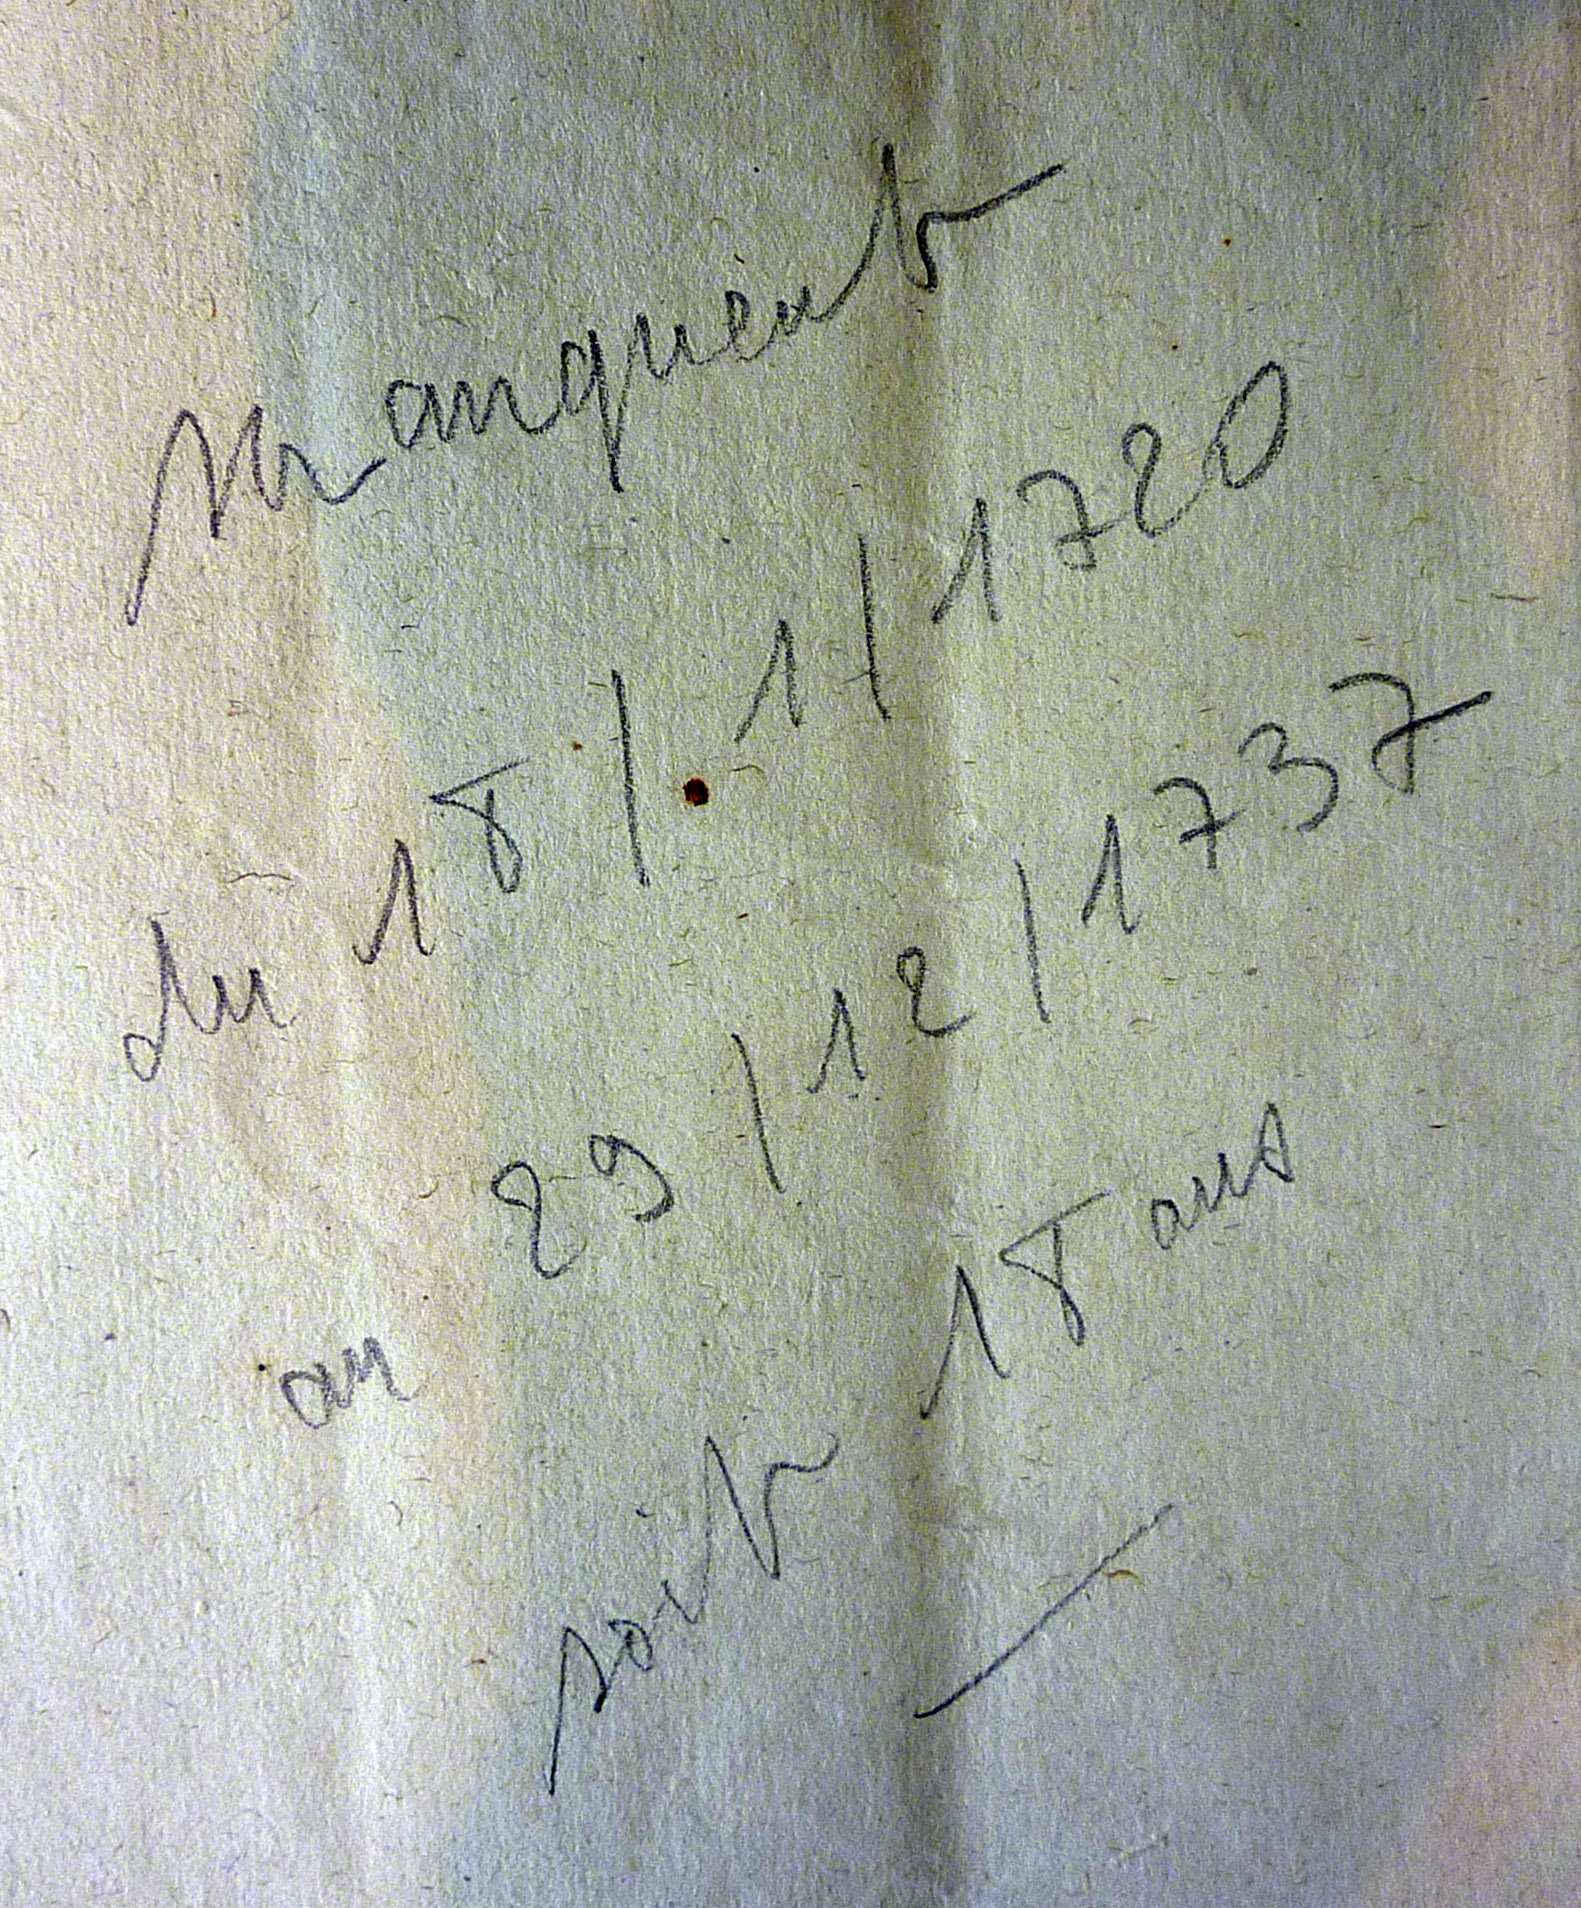 Manquent
du 18/1/1720
au 29/12/1737
soit 18 ans